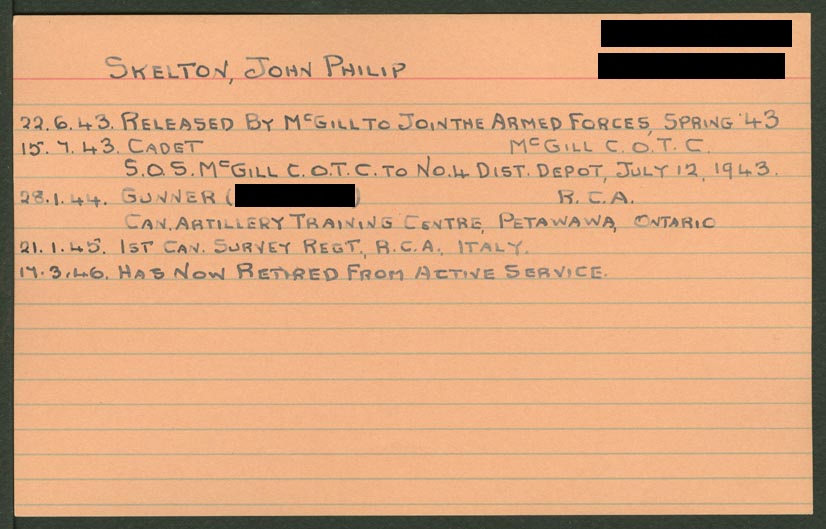 SKELTON, JOHN PHILIP
22.6.43. RELEASED BY McGILL TO JOIN THE ARMED FORCES, SPRING '43
15.7.43. CADET McGILL C.O.T.C.
S.O.S. McGILL C.O.T.C. TO NO.4 DIST. DEPOT, JULY 12, 1943.
28.1.44. GUNNER ( ) R.C.A.
CAN. ARTILLERY TRAINING CENTRE, PETAWAWA, ONTARIO
21.1.45. 1ST CAN. SURVEY REGT., R.C.A., ITALY.
17.3.46. HAS NOW RETIRED FROM ACTIVE SERVICE.